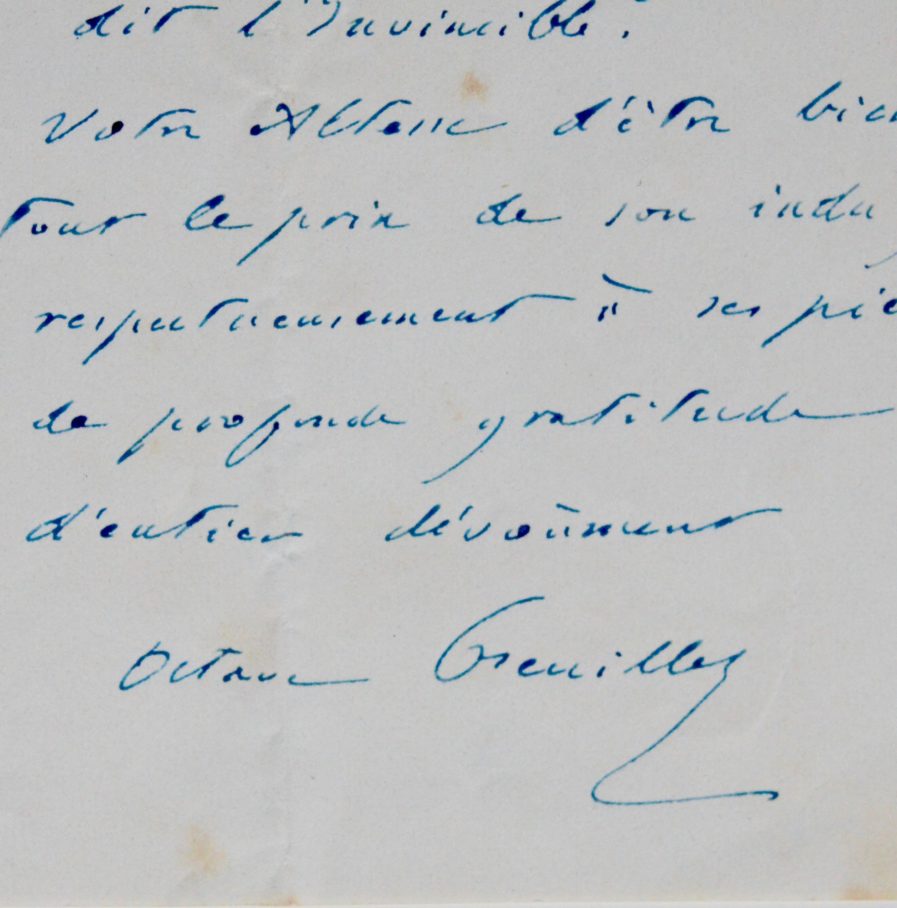 dit l'Invincible.
Votre Altesse d'être bien
tout le prix de son indu
respectueusement à ses pie
de profonde gratitude
d'entier dévoûment
Octave Feuillet